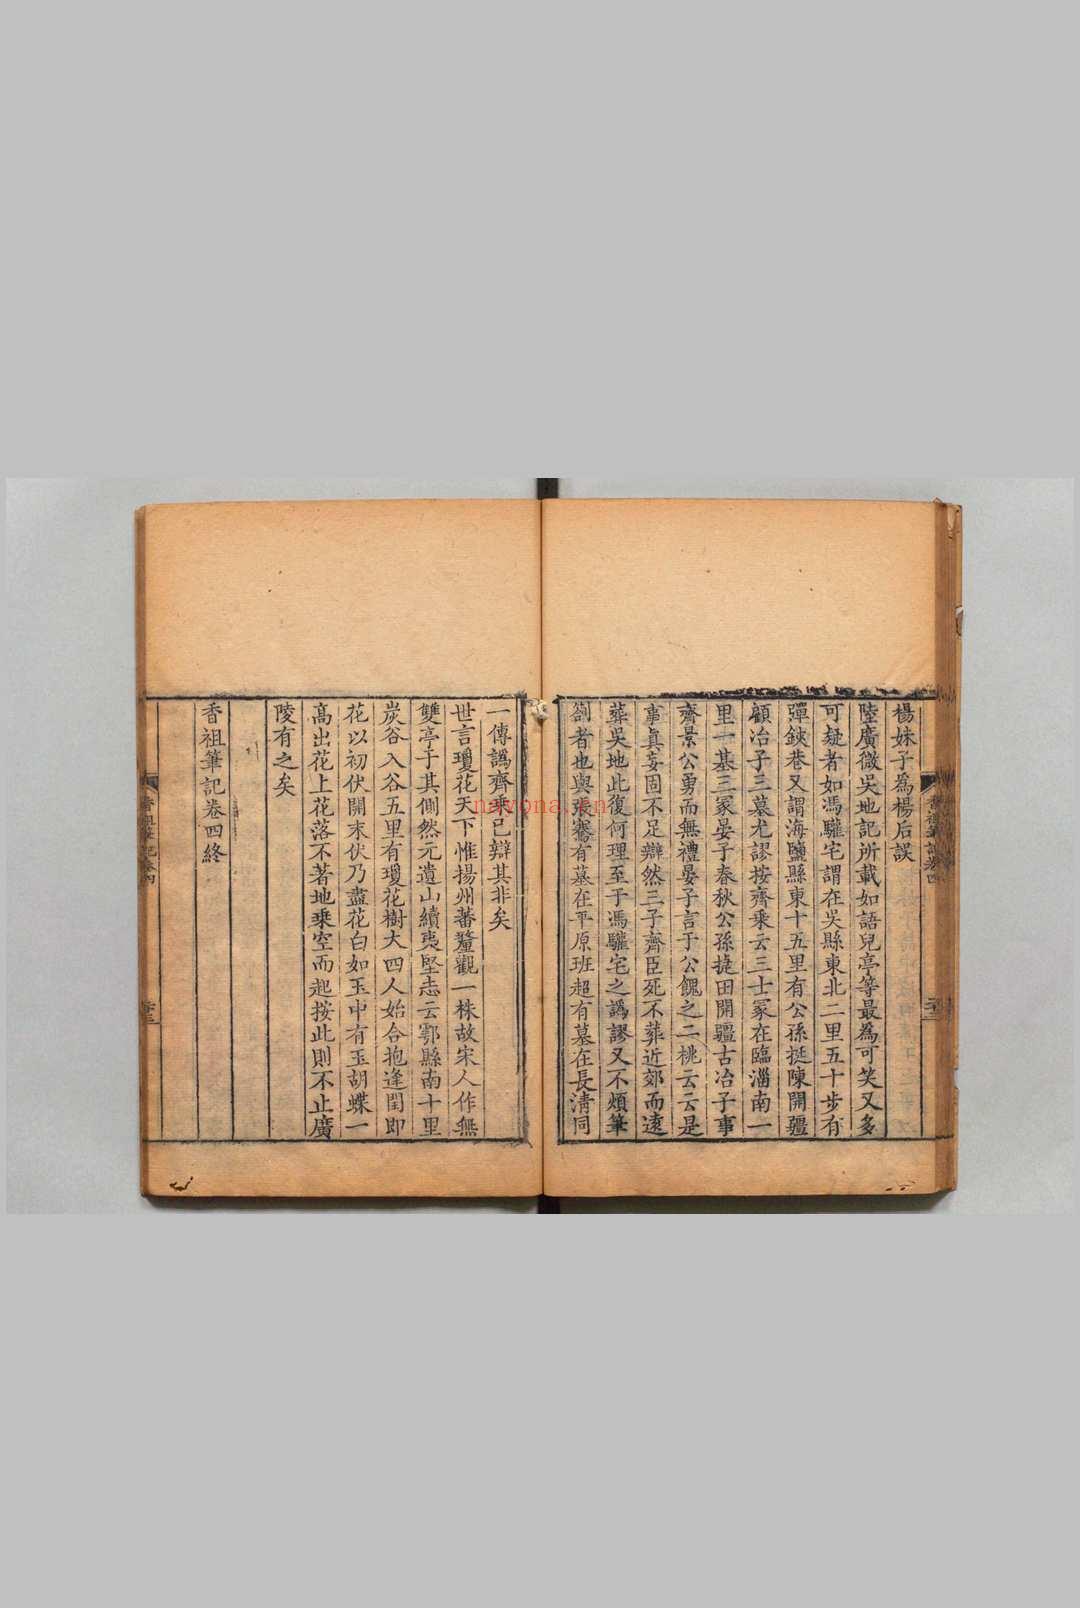 楊妹子爲楊后誤
陸廣微吳地記所載如語兒亭等最爲可笑又多
可疑者如馮驩宅謂在吳縣東北二里五十步有
彈鋏巷又謂海鹽縣東十五里有公孫挺陳開疆
顧冶子三墓尤謬按齊乘云三士冢在臨淄南一
里一基三冢晏子春秋公孫捷田開疆古冶子事
齊景公勇而無禮晏子言于公餽之二桃云云是
事眞妄固不足辯然三子齊臣死不葬近郊而遠
葬吳地此復何理至于馮驩宅之譌謬又不煩筆
劄者也與張騫有墓在平原班超有墓在長淸同
一傳譌齊乘已辯其非矣
世言瓊花天下惟揚州蕃釐觀一株故宋人作無
雙亭于其側然元遺山續夷堅志云鄠縣南十里
炭谷入谷五里有瓊花樹大四人始合抱逢閏即
花以初伏開末伏乃盡花白如玉中有玉胡蝶一
高出花上花落不著地乘空而起按此則不止廣
陵有之矣
香祖筆記卷四終
香祖筆記卷四
nayona.cn